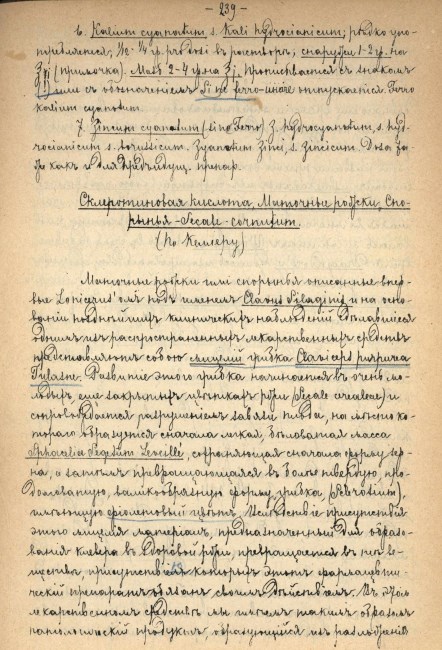 - 239 -
6. Kalium cyanatum, s. Kali hydrocianicum; рѣдко упо-
требляется; 1/12 - 1/4 gr. pro dosi въ растворѣ; снаружи 1-2 gr. на
℥j (примочка). Мазь 2-4 gr. на ℥j. Прописывается съ знакомъ
! или съ обозначеніемъ Sine ferro - иначе отпускается Ferro
kalium cyanatum.
7. Zincum cyanatum (sine Ferro) Z. hydrocyanatum, s. hyd-
rocianicum s. borussicum. Zyanatum Zinci, s. Zincicum. Dosa та
же какъ и для предъидущ. препар.
Склеротиновая кислота, Маточные рожки, Спо-
рынья - Secale - cornutum.
(По Кёлеру)
Маточные рожки или спорынья описанные впер-
вые Lonicerus'омъ подъ именемъ Clavus Silaginis и на осно-
ваніи позднѣйшихъ клиническихъ наблюденій сдѣлавшіеся
однимъ изъ распространенныхъ лекарственныхъ средствъ
представляютъ собою мицелій грибка Claviceps purpurea
Tulasne. Развитіе этого грибка начинается въ очень мо-
лодыхъ, еще закрытыхъ цвѣткахъ ржи (Secale cereale) и
сопровождается разрушеніемъ завязи плода, на мѣсто ко-
тораго образуется сначала мягкая, бѣловатая масса
Sphacelia Segetum Leveille, сохраняющая сначала форму зер-
на, а затѣмъ превращающаяся въ болѣе твердую, про-
долговатую, валикообразную форму грибка, (Sclerotium),
имѣющую фіолетовый цвѣтъ. Вслѣдствіе присутствія
этого мицелія матеріалъ, предназначенный для образо-
ванія клевера въ здоровой ржи, превращается въ тѣ ве-
щества, присутствію которыхъ этотъ фармацевти-
ческій препаратъ обязанъ своимъ дѣйствіемъ. Въ этомъ
лекарственномъ средствѣ мы имѣемъ такимъ образомъ
патологическій продуктъ, образующійся изъ разложенія